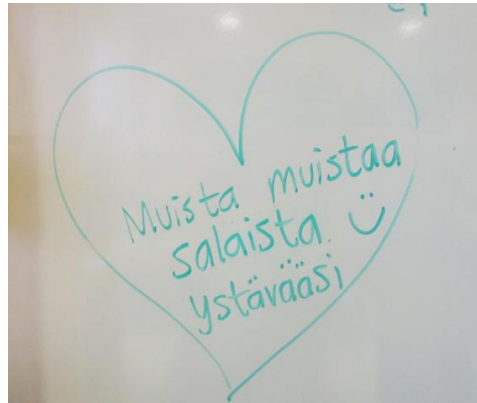 Muista muistaa
salaista
ystävääsi